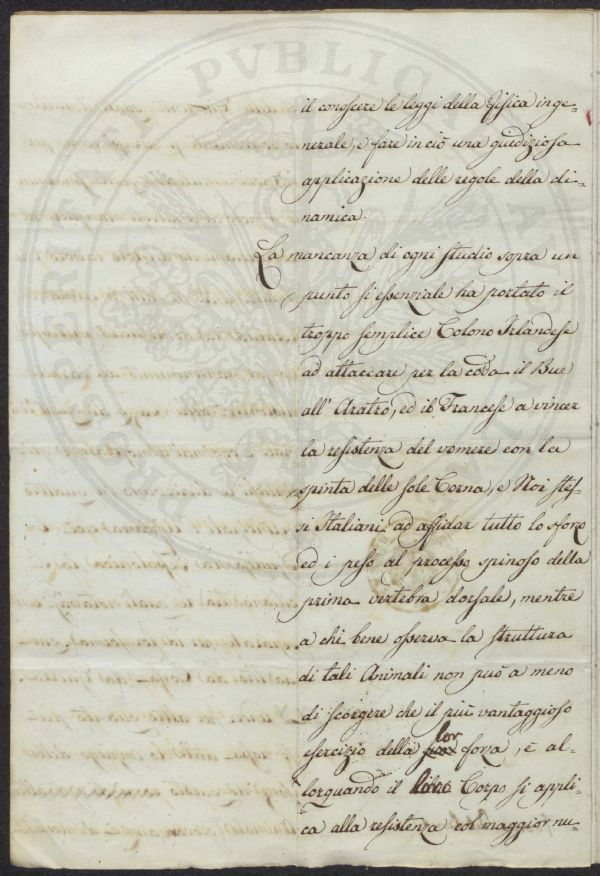 il conoscere le leggi della fisica inge=
nerale, e fare in ciò una giudiziosa
applicazione delle regole della di=
namica.
La mancanza di ogni studio sopra un
punto sì essenziale ha portato il
troppo semplice Colono Irlandese
ad attaccare per la coda il Bue
all' Aratro, ed il Francese a vincer
la resistenza del vomere con la
spinta delle sole Corna, e Noi stes=
si Italiani ad affidar tutto lo sforzo
ed i peso al processo spinoso della
prima vertebra dorsale, mentre
a chi bene osserva la struttura
di tali Animali non può a meno
di scorgere che il più vantaggioso
esercizio della lor forza, è al=
lorquando il loro Corpo si appli=
ca alla resistenza col maggior nu=